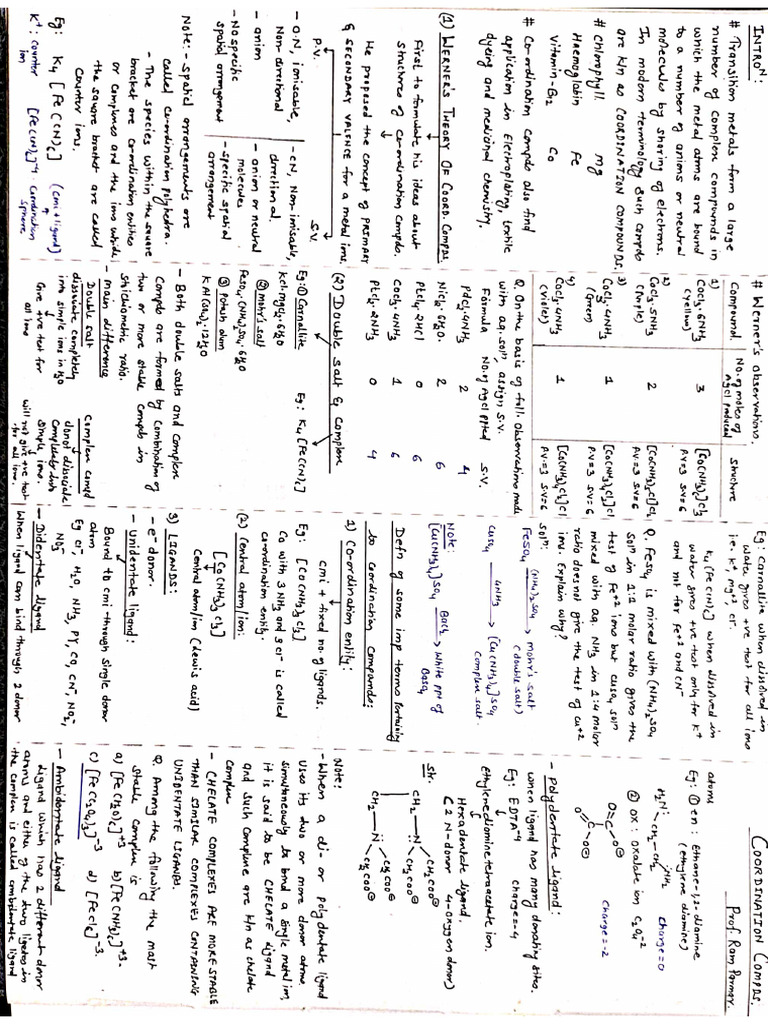 COORDINATION COMPDS.
Prof. Ram Parmar.
INTRON:
# Transition metals form a large
number of complex compounds in
which the metal atoms are bound
to a number of anions or neutral
molecules by sharing of electrons.
In modern terminology such compds
are k/n as COORDINATION COMPOUNDS.
# Chlorophyll. Mg
Haemoglobin Fe
Vitamin-B12 Co
# Co-ordination compds also find
application in Electroplating, textile
dyeing and medicinal chemistry.
(1) WERNER'S THEORY OF COORD. COMPDS.
First to formulate his ideas about
structures of co-ordination Compds.
He proposed the concept of PRIMARY
& SECONDARY VALENCE for a metal ions.
P.V. S.V.
- O.N, ionisable, - CN, Non-ionisable,
Non-directional directional.
- anion - anion or neutral
molecules.
- No specific - specific spatial
spatial arrangement arrangement
Note:- - spatial arrangements are
called Co-ordination polyhedra.
- The species within the square
bracket are coordination entities
or complexes and the ions outside
the square bracket are called
Counter ions.
Eg: K4[Fe(CN)6] (cmi + ligand)
K+: counter [Fe(CN)6]-4: coordination
ion sphere
# Werner's observations.
Compound No. of moles of Structure
AgCl produced
1) CoCl3.6NH3 3 [Co(NH3)6]Cl3
(yellow) PV=3 SV=6
2) CoCl3.5NH3 2 [Co(NH3)5Cl]Cl2
(Purple) PV=3 SV=6
3) CoCl3.4NH3 1 [Co(NH3)4Cl2]Cl
(Green) PV=3 SV=6
4) CoCl3.4NH3 1 [Co(NH3)4Cl2]Cl
(Violet) PV=3 SV=6
Q. On the basis of foll. observations made
with aq. soln, assign, S.V.
Formula No. of AgCl ppted S.V.
PdCl2.4NH3 2 4
NiCl2.6H2O. 2 6
PtCl4.2HCl 0 6
CoCl3.4NH3 1 6
PtCl2.2NH3 0 4
(2) Double salt & Complex
Eg: ① Carnallite Eg: K4[Fe(CN)6]
KCl.MgCl2.6H2O
② Mohr's salt
FeSO4.(NH4)2SO4.6H2O
③ Potash alum
KAl(SO4)2.12H2O
- Both double salts and Complex
Compds are formed by combination of
two or more stable compds in
stoichiometric ratio.
- main difference
Double salt
dissociate completely
into simple ions in H2O
Give +ve test for
all ions
Complex compd
do not dissociate
completely into
simple ions.
will not give +ve test
for all ions.
Eg: Carnallite when dissolved in
water gives +ve test for all ions
i.e. K+, Mg+2, Cl-.
K4[Fe(CN)6] when dissolved in
water gives +ve test only for K+
and not for Fe+2 and CN-
Q. FeSO4 is mixed with (NH4)2SO4
soln in 1:1 molar ratio gives the
test of Fe+2 ions but CuSO4 soln
mixed with aq. NH3 in 1:4 molar
ratio does not give the test of Cu+2
ions. Explain why?
soln:
FeSO4 (NH4)2SO4 → Mohr's salt
(double salt)
CuSO4 4NH3 → [Cu(NH3)4]SO4
complex salt.
Note:
[Cu(NH3)4]SO4 BaCl2 → White ppt of
BaSO4
Defn of some imp terms pertaining
to Coordination Compounds:
1) Co-ordination entity:
cmi + fixed no. of ligands.
Eg: [Co(NH3)3Cl3]
Co with 3 NH3 and 3 Cl- is called
coordination entity.
(2) Central atom/ion:
[Co(NH3)3Cl3]
Central atom/ion (Lewis acid)
3) LIGANDS:
- e- donor.
- Unidentate ligand:
Bound to cmi through single donor
atom
Eg Cl-, H2O, NH3, PY, CO, CN-, NO2-,
NO3-
- Didentate ligand
When ligand can bind through 2 donor
atoms
Eg: ① en: Ethane-1,2-diamine
(ethylene diamine)
H2N: :NH2
CH2-CH2 charge=0
② OX: oxalate ion C2O4-2
O=C-O⊖
O=C-O⊖ charge=-2
- Polydentate ligand:
when ligand has many donating sites.
Eg: EDTA-4 charge=-4
ethylenediaminetetraacetate ion.
Hexadentate ligand
(2 N-donor 4-oxygen donor)
Str.
CH2COO⊖
CH2-N
CH2COO⊖
CH2COO⊖
CH2-N
CH2COO⊖
Note:
- When a di- or polydentate ligand
uses its two or more donor atoms,
simultaneously to bind a single metal ion,
it is said to be CHELATE ligand
and such complexes are k/n as chelate
complex
- CHELATE COMPLEXES ARE MORE STABLE
THAN SIMILAR COMPLEXES CONTAINING
UNIDENTATE LIGANDS.
Q. Among the following the most
stable complex is
a) [Fe(H2O)6]+3 b) [Fe(NH3)6]+3.
c) [Fe(C2O4)3]-3 d) [FeCl6]-3.
- Ambidentate ligand
ligand which has 2 different donor
atoms and either of the two ligates in
the complex is called ambidentate ligand